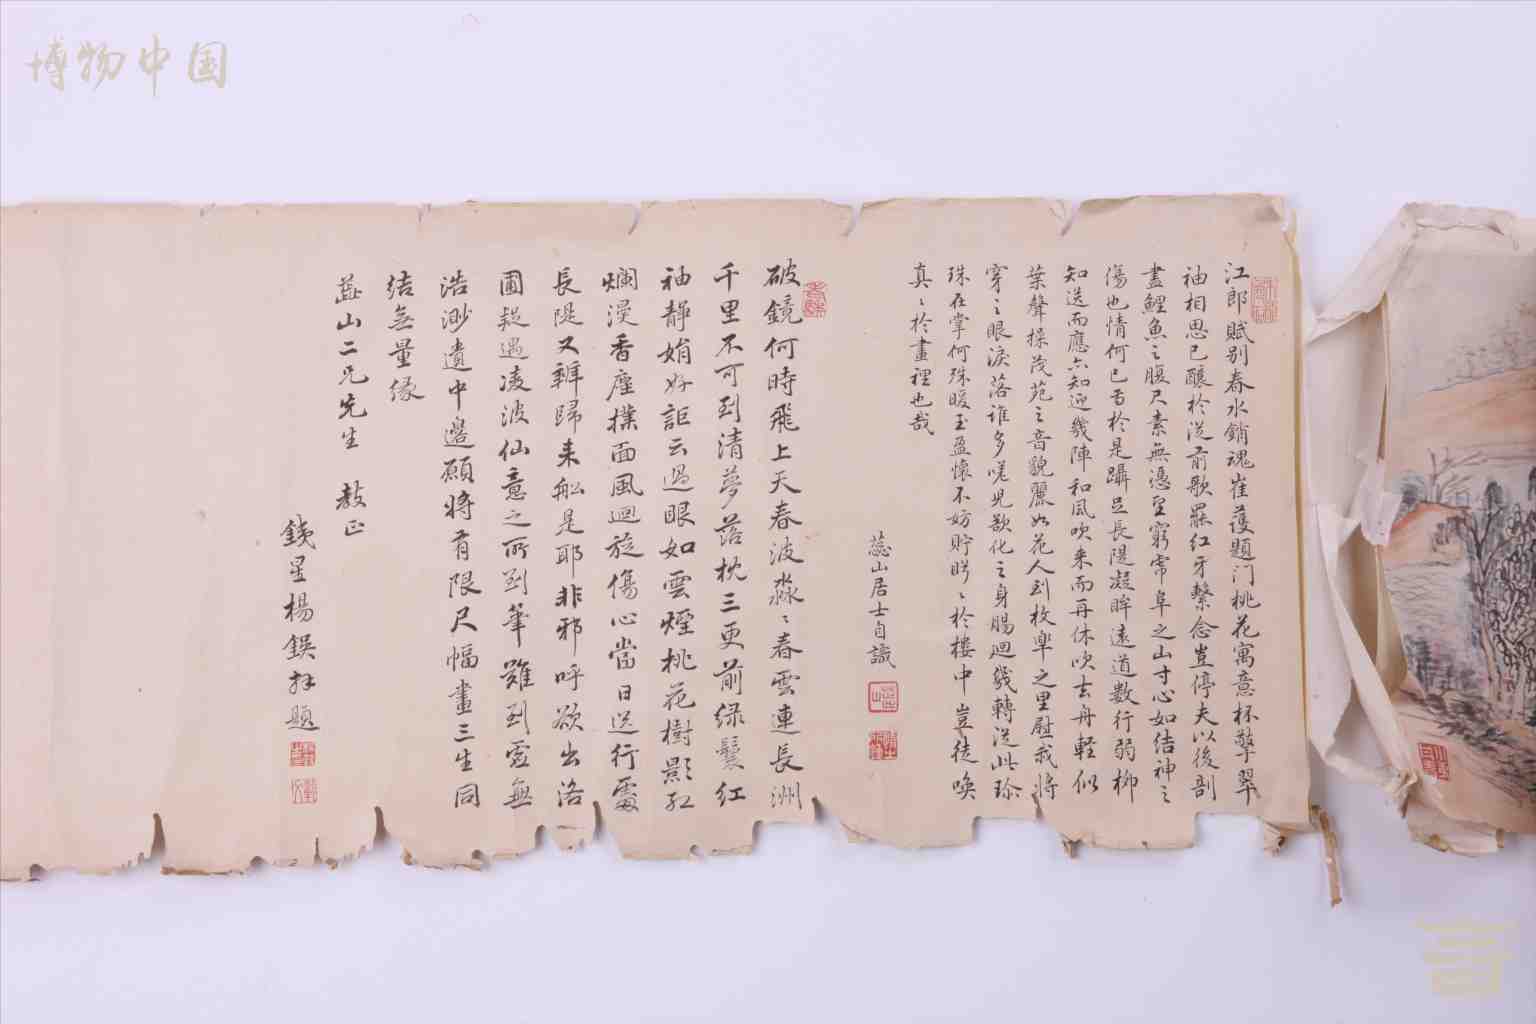 博物中国
江郎賦别春水銷魂崔護題门桃花寓意杯擎翠
袖相思已釀於從前歌羅红牙繫念豈停夫以後剖
盡鯉魚之腹尺素無憑望窮常阜之山寸心如结神之
傷也情何已焉於是躡足長隄凝眸遠道數行弱柳
知送而應亦知迎幾陣和風吹来而再休吹去舟軽似
葉聲操茂苑之音貌麗如花人到枚皐之里慰我將
穿之眼淚落誰多嗟児欲化之身腸迴幾轉從此珍
珠在掌何殊暖玉盈懷不妨貯盼〻於樓中豈徒喚
真〻於畫裡也哉
蕊山居士自識
破鏡何時飛上天春波淼〻春雲連長洲
千里不可到清夢落枕三更前绿鬟红
袖静娟好詎云過眼如雲煙桃花樹影红
爛漫香塵撲面風迴旋傷心當日送行處
長隄又繂歸来舩是耶非邪呼欲出洛
圃疑遇凌波仙意之所到筆難到虚無
浩渺遺中邊願將有限尺幅畫三生同
结無量缘
蕊山二兄先生 教正
銕星楊鍈拜題